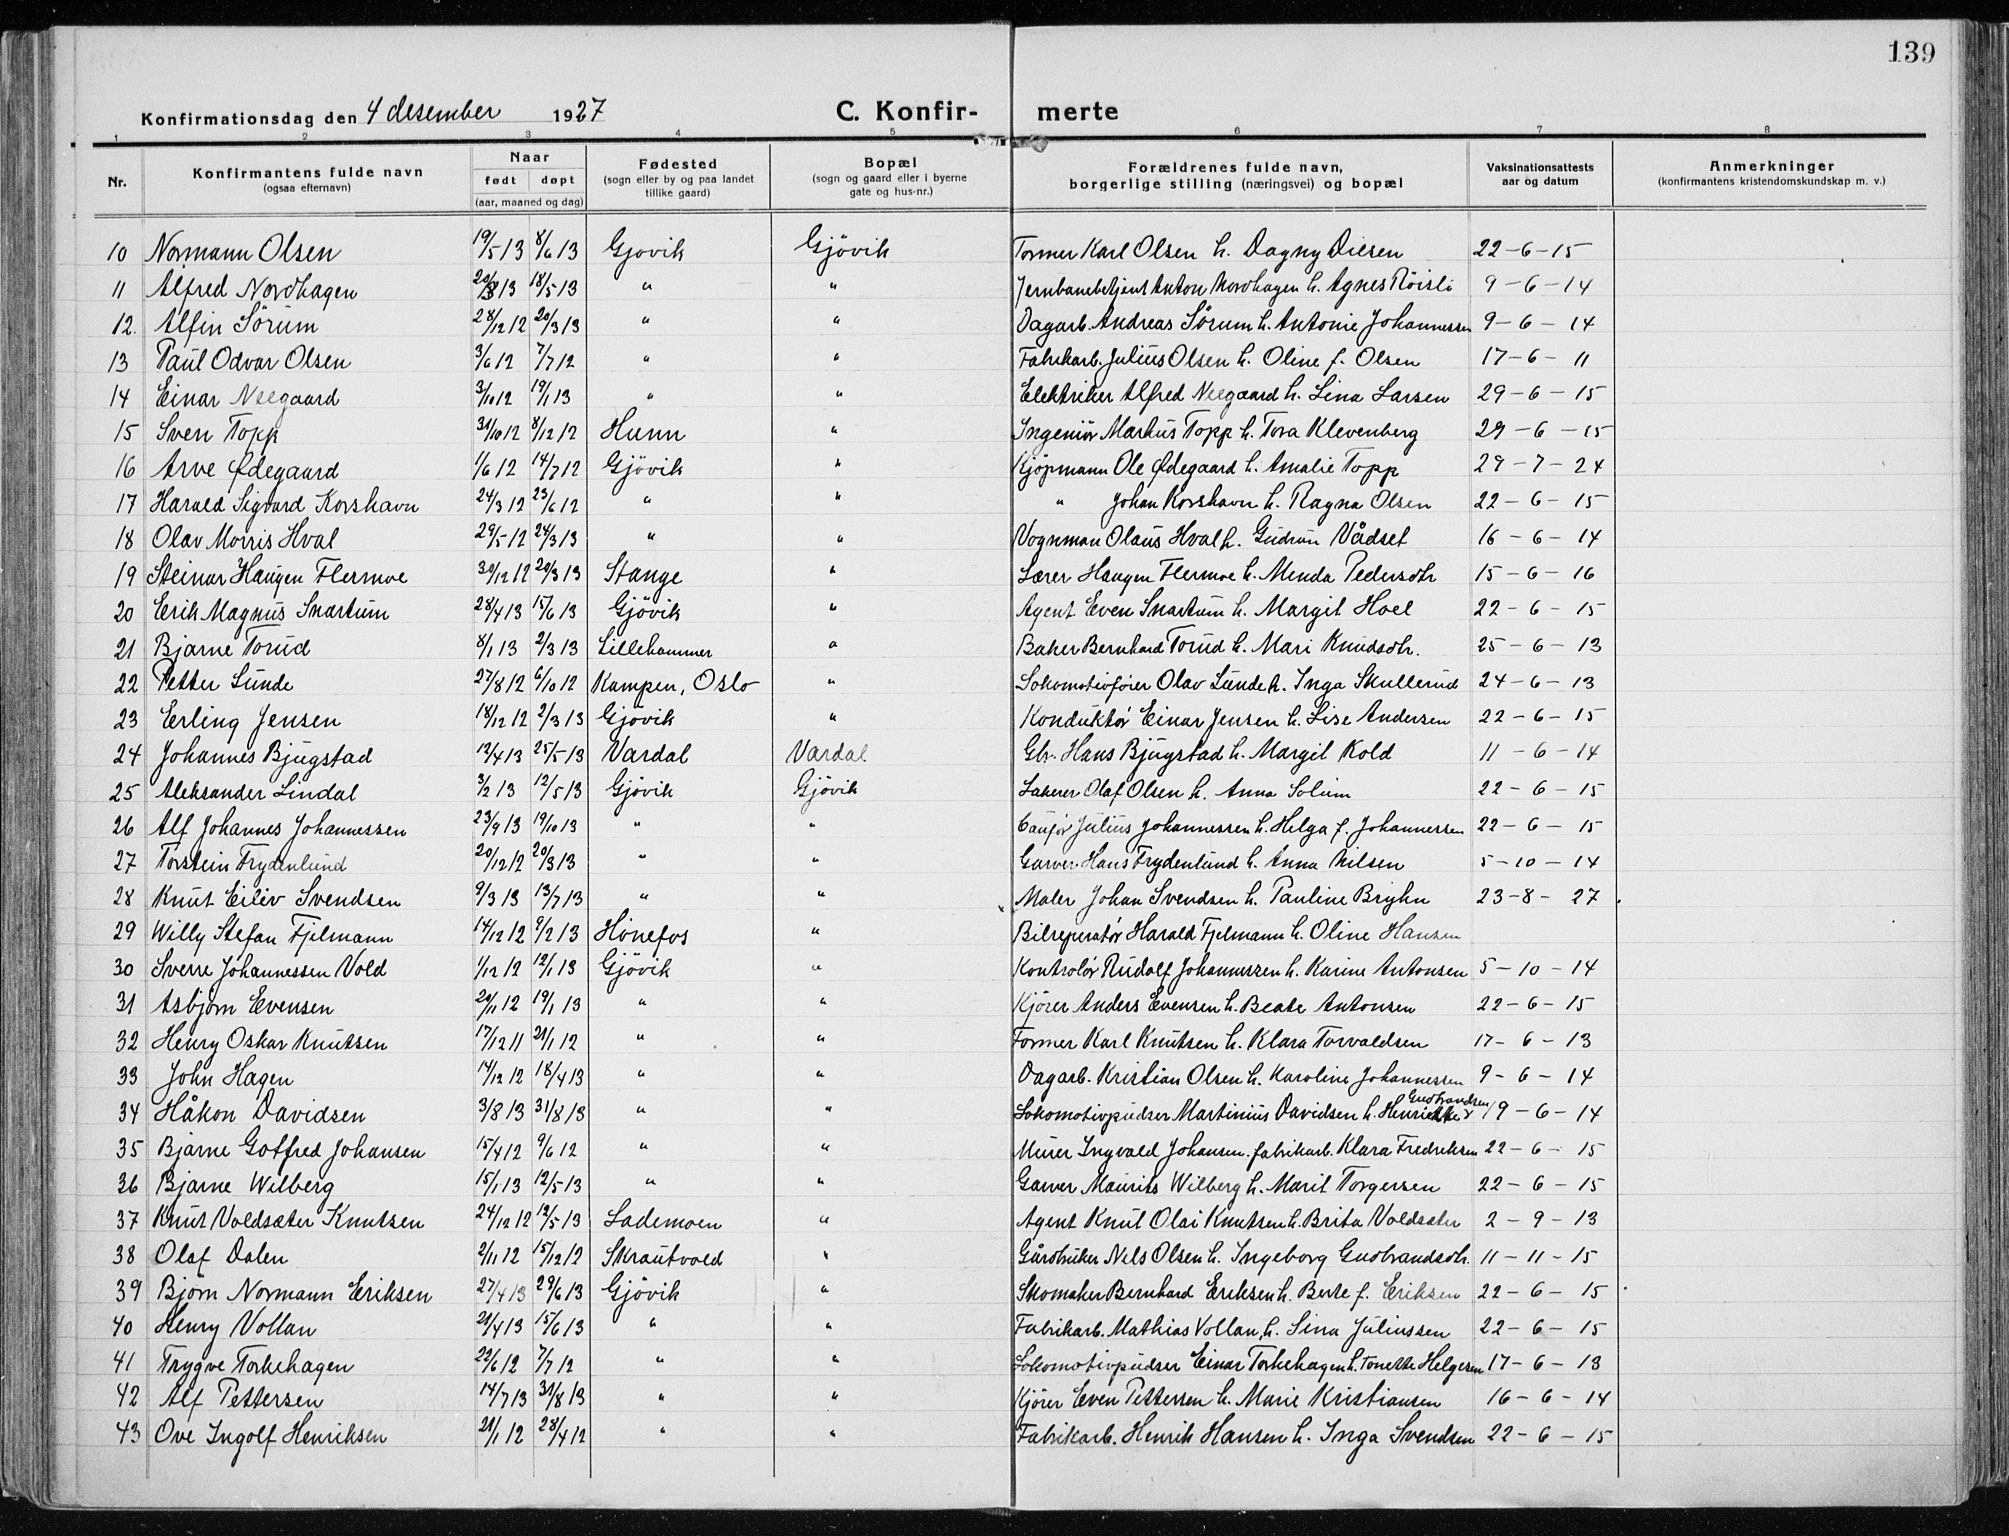 139
Konfirmationsdag den 4 desember 1927 C. Konfir- merte
1 2 3 4 5 6 7 8
Nr. Konfirmantens fulde navn (ogsaa efternavn) Naar født døpt (aar, maaned og dag) Fødested (sogn eller by og paa landet tillike gaard) Bopæl (sogn og gaard eller i byerne gate og hus-nr.) Forældrenes fulde navn, borgerlige stilling (næringsvei) og bopæl Vaksinationsattests aar og datum Anmerkninger (konfirmantens kristendomskundskap m. v.)
10 Normann Olsen 19/5 13 8/6 13 Gjøvik Gjøvik Former Karl Olsen h. Dagny Diesen 22-6-15
11 Alfred Nordhagen 13 18/5 13 " " Jernbanebetjent Anton Nordhagen h. Agnes Röisli 9-6-14
12. Alfin Sörum 28/12 12 20/3 13 " " Dagarb. Andreas Sörum h. Antonie Johannessen 9-6-14
13 Paul Odvar Olsen 3/6 12 7/7 12 " " Fabrikarb. Julius Olsen h. Oline f. Olsen 17-6-11
14 Einar Neegaard 3/10 12 19/1 13 " " Elektriker Alfred Neegaard h. Lina Larsen 29-6-15
15 Sven Topp 31/10 12 8/12 12 Hunn " Ingeniör Markus Topp h. Tora Klevenberg 29-6-15
16 Arve Ødegaard 1/6 12 14/7 12 Gjövik " Kjöpmann Ole Ødegaard h. Amalie Topp 29-7-24
17 Harald Sigvard Korshavn 24/3 12 23/6 12 " " " Johan Korshavn h. Ragna Olsen 22-6-15
18 Olav Morris Hval 29/5 12 24/3 13 " " Vognman Olaus Hval h. Gudrun Vådset 16-6-14
19 Steinar Haugen Flermoe 30/12 12 20/3 13 Stange " Lærer Haugen Flermoe h. Menda Pedersdtr 15-6-16
20 Erik Magnus Snartum 28/4 13 15/6 13 Gjövik " Agent Even Snartum h. Margit Hoel 22-6-15
21 Bjarne Torud 8/1 13 2/3 13 Lillehammer " Baker Bernhard Torud h. Mari Knudsdtr. 25-6-13
22 Petter Lunde 27/8 12 6/10 12 Kampen, Oslo " Lokomotivföier Olav Lunde h. Inga Skullerud 24-6-13
23 Erling Jensen 18/12 12 2/3 13 Gjövik " Konduktör Einar Jensen h. Lise Andersen 22-6-15
24 Johannes Bjugstad 12/4 13 25/5 13 Vardal Vardal Gbr. Hans Bjugstad h. Margit Kold 11-6-14
25 Aleksander Lindal 3/2 13 12/5 13 Gjövik Gjövik Lakerer Olaf Olsen h. Anna Solum 22-6-15
26 Alf Johannes Johannessen 23/9 13 19/10 13 " " Julius Johannessen h. Helga f. Johannessen 22-6-15
27 Torstein Frydenlund 20/12 12 20/3 13 " " Garver Hans Frydenlund h. Anna Nilsen 5-10-14
28 Knut Eiliv Svendsen 9/3 13 13/7 13 " " Maler Johan Svendsen h. Pauline Bryhn 23-8-27
29 Willy Stefan Fjelmann 14/12 12 9/2 13 Hönefos " Bilreperatör Harald Fjelmann h. Oline Hansen
30 Sverre Johannessen Vold 1/12 12 12/1 13 Gjövik " Kontrolör Rudolf Johannessen h. Karine Antonsen 5-10-14
31 Asbjörn Evensen 20/11 12 19/1 13 " " Kjörer Anders Evensen h. Beate Antonsen 22-6-15
32 Henry Oskar Knutsen 17/12 11 21/1 12 " " Former Karl Knutsen h. Klara Torvaldsen 17-6-13
33 John Hagen 14/12 12 18/4 13 " " Dagarb. Kristian Olsen h. Karoline Johannessen 9-6-14
34 Håkon Davidsen 3/8 13 31/8 13 " " Lokomotivpudser Martinius Davidsen h. Henrikke Gudbrandsen 19-6-14
35 Bjarne Gotfred Johansen 15/4 12 9/6 12 " " Murer Ingvald Johansen. fabrikarb. Klara Fredriksen 22-6-15
36 Bjarne Wilberg 15/1 13 12/5 13 " " Garver Maurits Wilberg h. Marit Torgersen 22-6-15
37 Knut Voldsæter Knutsen 24/12 12 13/5 13 Lademoen " Agent Knut Olai Knutsen h. Brita Voldsæter 2-9-13
38 Olaf Dalen 2/11 12 15/12 12 Skrautvold " Gårdbruker Nels Olsen h. Ingeborg Gudbrandsdtr. 11-11-15
39 Björn Normann Eriksen 27/4 13 29/6 13 Gjövik " Skomaker Bernhard Eriksen h. Berte f. Eriksen 22-6-15
40 Henry Vollan 21/4 13 15/6 13 " " Fabrikarb. Mathias Vollan, h. Lina Juliussen 22-6-15
41 Trygve Torkehagen 22/6 12 7/7 12 " " Lokomotivpudser Einar Torkehagen h. Tonette Helgesen 17-6-13
42 Alf Pettersen 14/7 13 31/8 13 " " Kjörer Even Pettersen h. Marie Kristiansen 16-6-14
43 Ove Ingolf Henriksen 21/1 12 28/4 12 " " Fabrikarb. Henrik Hansen h. Inga Svendsen 22-6-15